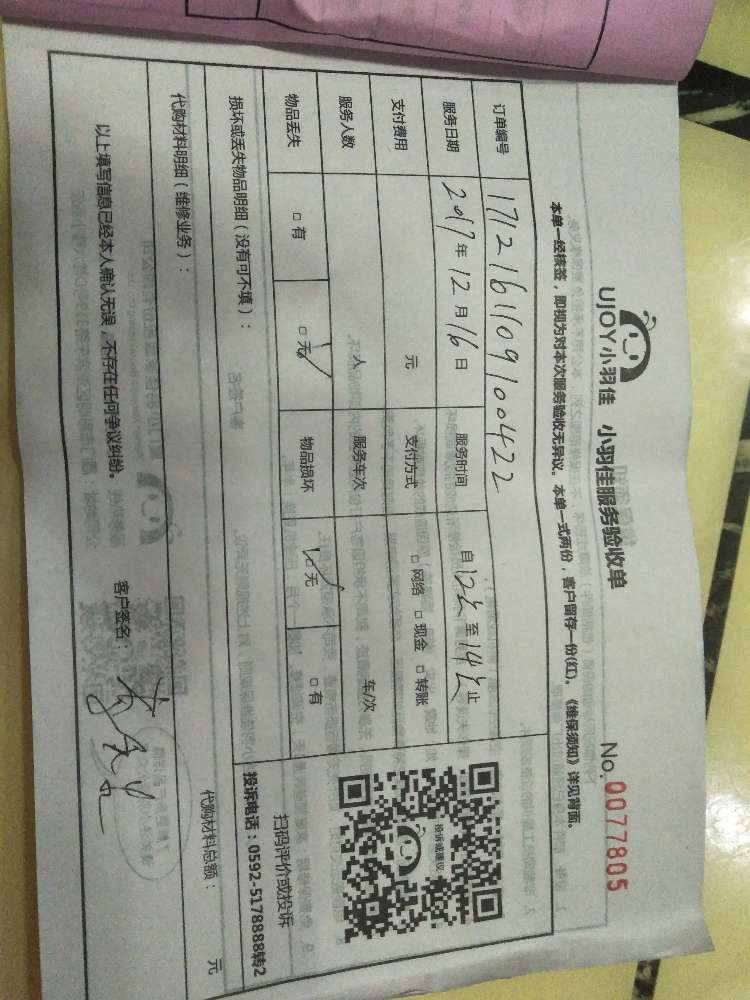 UJOY小羽佳 小羽佳服务验收单 No. 0077805
本单一经核签，即视为对本次服务验收无异议。本单一式两份，客户留存一份(红)。《维保须知》详见背面。
订单编号 171216110910​0422
服务日期 2017年12月16日 服务时间 自12点至14点止
支付费用 元 支付方式 □网络 □现金 □转账
服务人数 人 服务车次 车/次
物品丢失 □有 □无 物品损坏 □无 □有
投诉或建议
扫码评价或投诉
投诉电话：0592-5178888转2
损坏或丢失物品明细（没有可不填）：
代购材料明细（维修业务）： 代购材料总额： 元
以上填写信息已经本人确认无误，不存在任何争议纠纷。 客户签名：